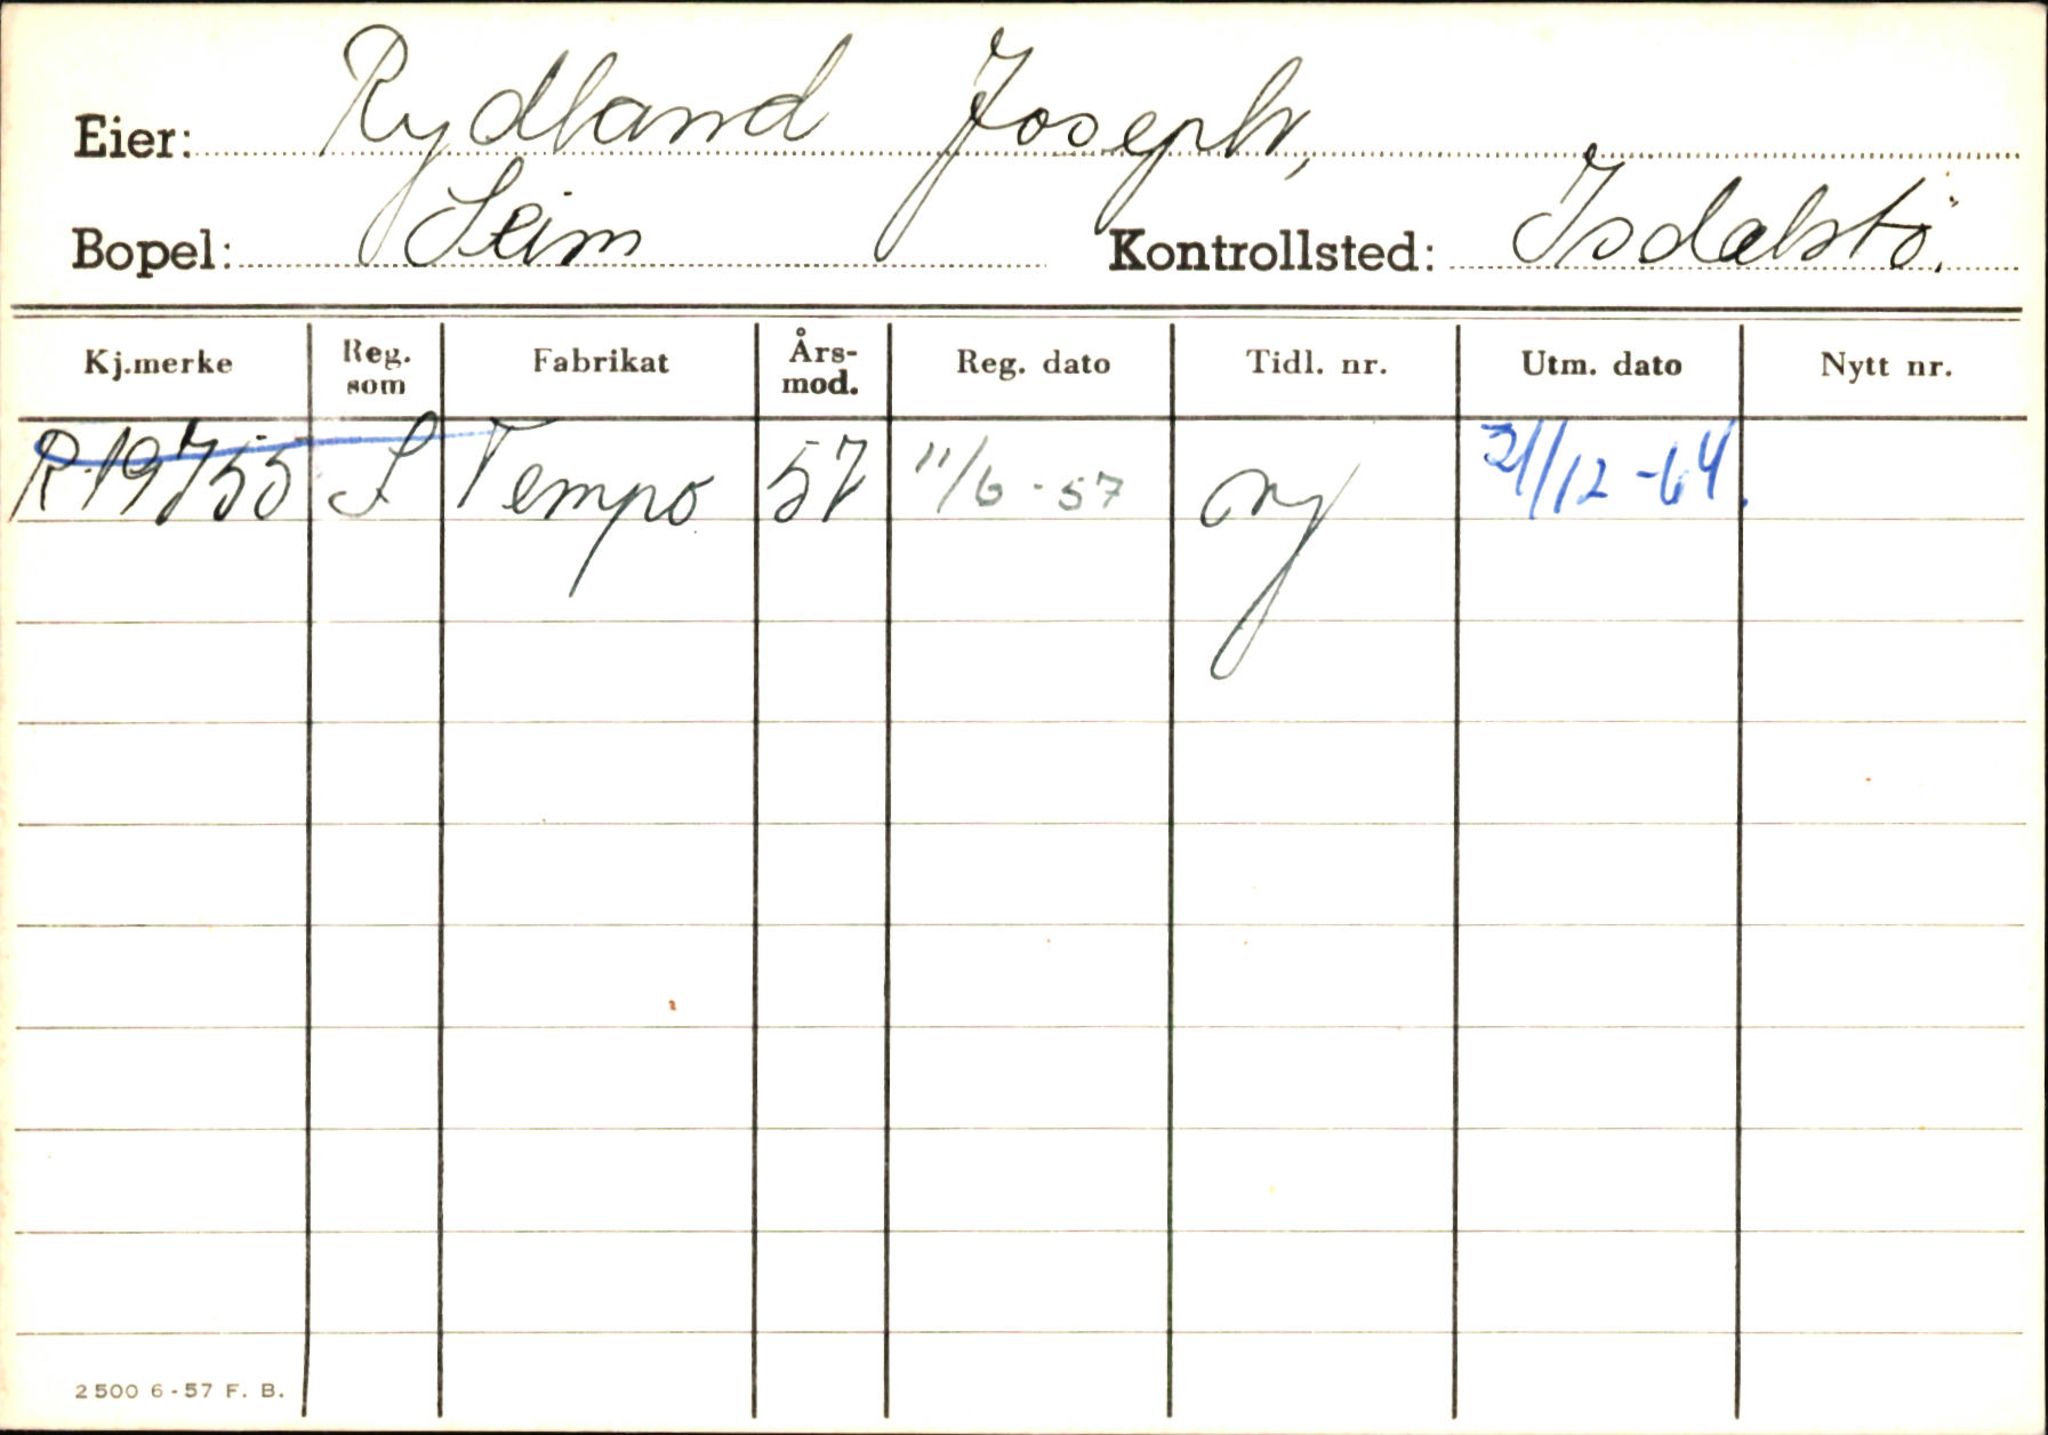 Eier: Rydland Joseph,
Bopel: Seim Kontrollsted: Isdalstö.
Kj.merke Reg. som Fabrikat Års-mod. Reg. dato Tidl. nr. Utm. dato Nytt nr.
R-19755 S Tempo 57 11/6-57 ny 31/12-64.
2500 6-57 F. B.